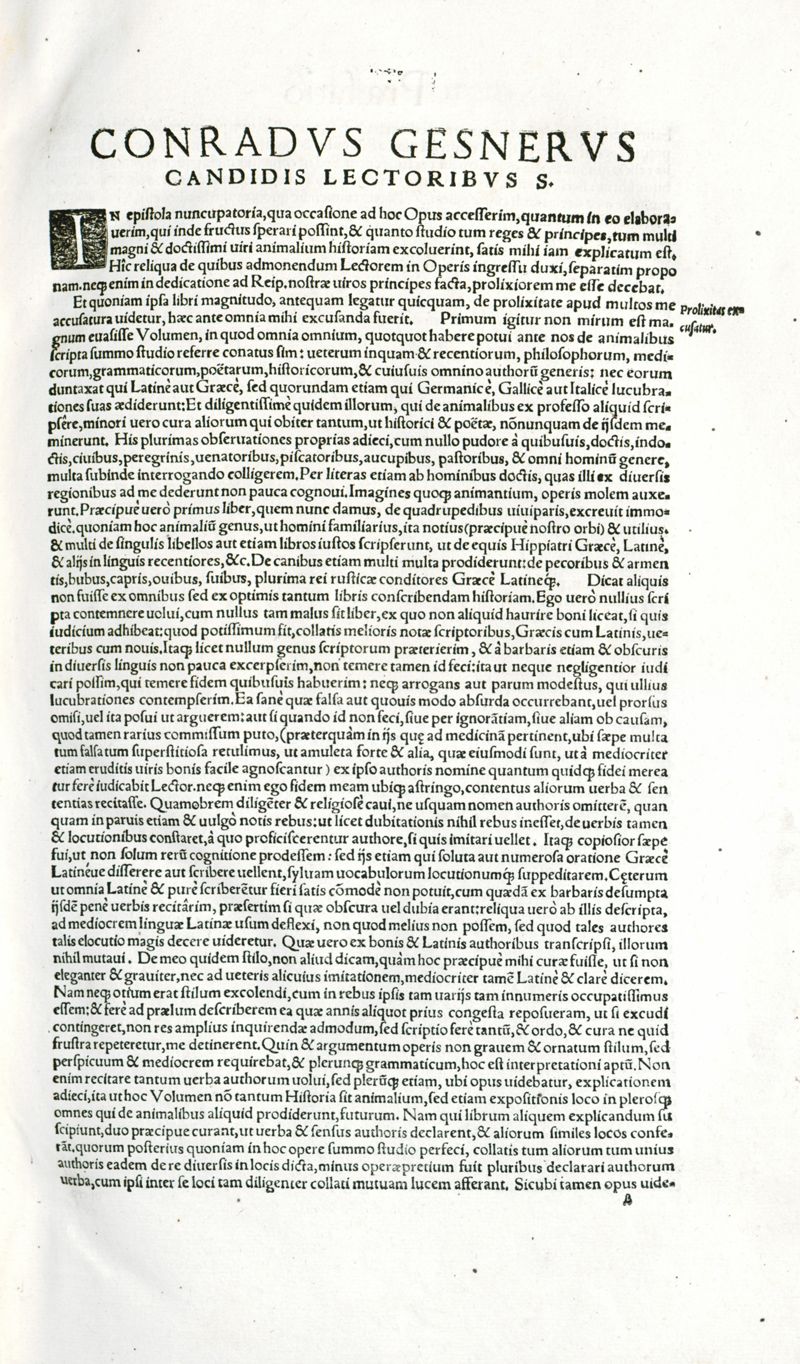 CONRADVS GESNERVS
CANDIDIS LECTORIBVS S.
IN epiſtola nuncupatoria, qua occaſione ad hoc Opus acceſſerim, quantum in eo elabora-
uerim, qui inde fructus ſperari poſſint, & quanto ſtudio tum reges & principes, tum multi
magni & doctiſſimi uiri animalium hiſtoriam excoluerint, ſatis mihi iam explicatum eſt.
Hîc reliqua de quibus admonendum Lectorem in Operis ingreſſu duxi, ſeparatim propo
nam. neq; enim in dedicatione ad Reip. noſtræ uiros principes facta, prolixiorem me eſſe decebat.
Et quoniam ipſa libri magnitudo, antequam legatur quicquam, de prolixitate apud multos me
Prolixitas ex-
accuſatura uidetur, hæc ante omnia mihi excuſanda fuerit. Primum igitur non mirum eſt ma-
cuſatur.
gnum euaſiſſe Volumen, in quod omnia omnium, quotquot habere potui ante nos de animalibus
ſcripta ſummo ſtudio referre conatus ſim: ueterum inquam & recentiorum, philoſophorum, medi-
corum, grammaticorum, poëtarum, hiſtoricorum, & cuiuſuis omnino authorū generis: nec eorum
duntaxat qui Latinè aut Græcè, ſed quorundam etiam qui Germanicè, Gallicè aut Italicè lucubra-
tiones ſuas ædiderunt: Et diligentiſſimè quidem illorum, qui de animalibus ex profeſſo aliquid ſcri-
pſêre, minori uero cura aliorum qui obiter tantum, ut hiſtorici & poëtæ, nōnunquam de ijſdem me-
minerunt. His plurimas obſeruationes proprias adieci, cum nullo pudore à quibuſuis, doctis, indo-
ctis, ciuibus, peregrinis, uenatoribus, piſcatoribus, aucupibus, paſtoribus, & omni hominū genere,
multa ſubinde interrogando colligerem. Per literas etiam ab hominibus doctis, quas illi ex diuerſis
regionibus ad me dederunt non pauca cognoui. Imagines quoq; animantium, operis molem auxe-
runt. Præcipuè uerò primus liber, quem nunc damus, de quadrupedibus uiuiparis, excreuit immo-
dicè. quoniam hoc animaliū genus, ut homini familiarius, ita notius (præcipuè noſtro orbi) & utilius.
& multi de ſingulis libellos aut etiam libros iuſtos ſcripſerunt, ut de equis Hippiatri Græcè, Latinè,
& alijs in linguis recentiores, &c. De canibus etiam multi multa prodiderunt: de pecoribus & armen
tis, bubus, capris, ouibus, ſuibus, plurima rei ruſticæ conditores Græcè Latineq;. Dicat aliquis
non fuiſſe ex omnibus ſed ex optimis tantum libris conſcribendam hiſtoriam. Ego uerò nullius ſcri
pta contemnere uolui, cum nullus tam malus ſit liber, ex quo non aliquid haurire boni liceat, ſi quis
iudicium adhibeat: quod potiſſimum fit, collatis melioris notæ ſcriptoribus, Græcis cum Latinis, ue-
teribus cum nouis. Itaq; licet nullum genus ſcriptorum præterierim, & à barbaris etiam & obſcuris
in diuerſis linguis non pauca excerpſerim, non temere tamen id feci: ita ut neque negligentior iudi
cari poſſim, qui temere fidem quibuſuis habuerim: neq; arrogans aut parum modeſtus, qui ullius
lucubrationes contempſerim. Ea ſanè quæ falſa aut quouis modo abſurda occurrebant, uel prorſus
omiſi, uel ita poſui ut arguerem: aut ſi quando id non feci, ſiue per ignorātiam, ſiue aliam ob cauſam,
quod tamen rarius commiſſum puto, (præterquàm in ijs quę ad medicinā pertinent, ubi ſæpe multa
tum falſa tum ſuperſtitioſa retulimus, ut amuleta forte & alia, quæ eiuſmodi ſunt, ut à mediocriter
etiam eruditis uiris bonis facile agnoſcantur) ex ipſo authoris nomine quantum quidq; fidei merea
tur ferè iudicabit Lector. neq; enim ego fidem meam ubiq; aſtringo, contentus aliorum uerba & ſen
tentias recitaſſe. Quamobrem diligēter & religioſè caui, ne uſquam nomen authoris omitterē, quan
quam in paruis etiam & uulgò notis rebus: ut licet dubitationis nihil rebus ineſſet, de uerbis tamen
& locutionibus conſtaret, à quo proficiſcerentur authore, ſi quis imitari uellet. Itaq; copioſior ſæpe
fui, ut non ſolum rerū cognitione prodeſſem: ſed ijs etiam qui ſoluta aut numeroſa oratione Græcè
Latinéue differere aut ſcribere uellent, ſyluam uocabulorum locutionumq; ſuppeditarem. Cęterum
ut omnia Latinè & purè ſcriberētur fieri ſatis cōmodè non potuit, cum quædā ex barbaris deſumpta
ijſdē penè uerbis recitârim, præſertim ſi quæ obſcura uel dubia erant: reliqua uerò ab illis deſcripta,
ad mediocrem linguæ Latinæ uſum deflexi, non quod melius non poſſem, ſed quod tales authores
talis elocutio magis decere uideretur. Quæ uero ex bonis & Latinis authoribus tranſcripſi, illorum
nihil mutaui. De meo quidem ſtilo, non aliud dicam, quàm hoc præcipuè mihi curæ fuiſſe, ut ſi non
eleganter & grauiter, nec ad ueteris alicuius imitationem, mediocriter tamē Latinè & clarè dicerem.
Nam neq; otium erat ſtilum excolendi, cum in rebus ipſis tam uarijs tam innumeris occupatiſſimus
eſſem: & ferè ad prælum deſcriberem ea quæ annis aliquot prius congeſta repoſueram, ut ſi excudi
contingeret, non res amplius inquirendæ admodum, ſed ſcriptio ferè tantū, & ordo, & cura ne quid
fruſtra repeteretur, me detinerent. Quin & argumentum operis non grauem & ornatum ſtilum, ſed
perſpicuum & mediocrem requirebat, & plerunq; grammaticum, hoc eſt interpretationi aptū. Non
enim recitare tantum uerba authorum uolui, ſed plerūq; etiam, ubi opus uidebatur, explicationem
adieci, ita ut hoc Volumen nō tantum Hiſtoria ſit animalium, ſed etiam expoſitionis loco in pleroſq;
omnes qui de animalibus aliquid prodiderunt, futurum. Nam qui librum aliquem explicandum ſu
ſcipiunt, duo præcipue curant, ut uerba & ſenſus authoris declarent, & aliorum ſimiles locos confe-
rāt. quorum poſterius quoniam in hoc opere ſummo ſtudio perfeci, collatis tum aliorum tum unius
authoris eadem de re diuerſis in locis dicta, minus operæpretium fuit pluribus declarari authorum
uerba, cum ipſi inter ſe loci tam diligenter collati mutuam lucem afferant. Sicubi tamen opus uide-
A